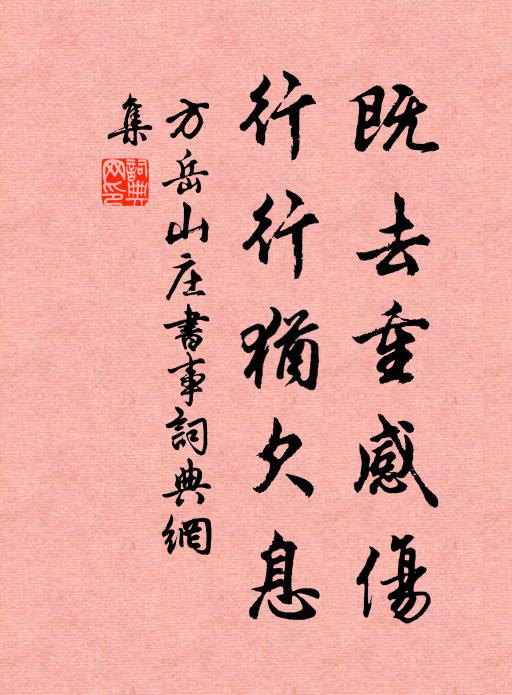 既去重感傷
行行猶欠息
方岳山庄書事詞典網
集
詞典
网印